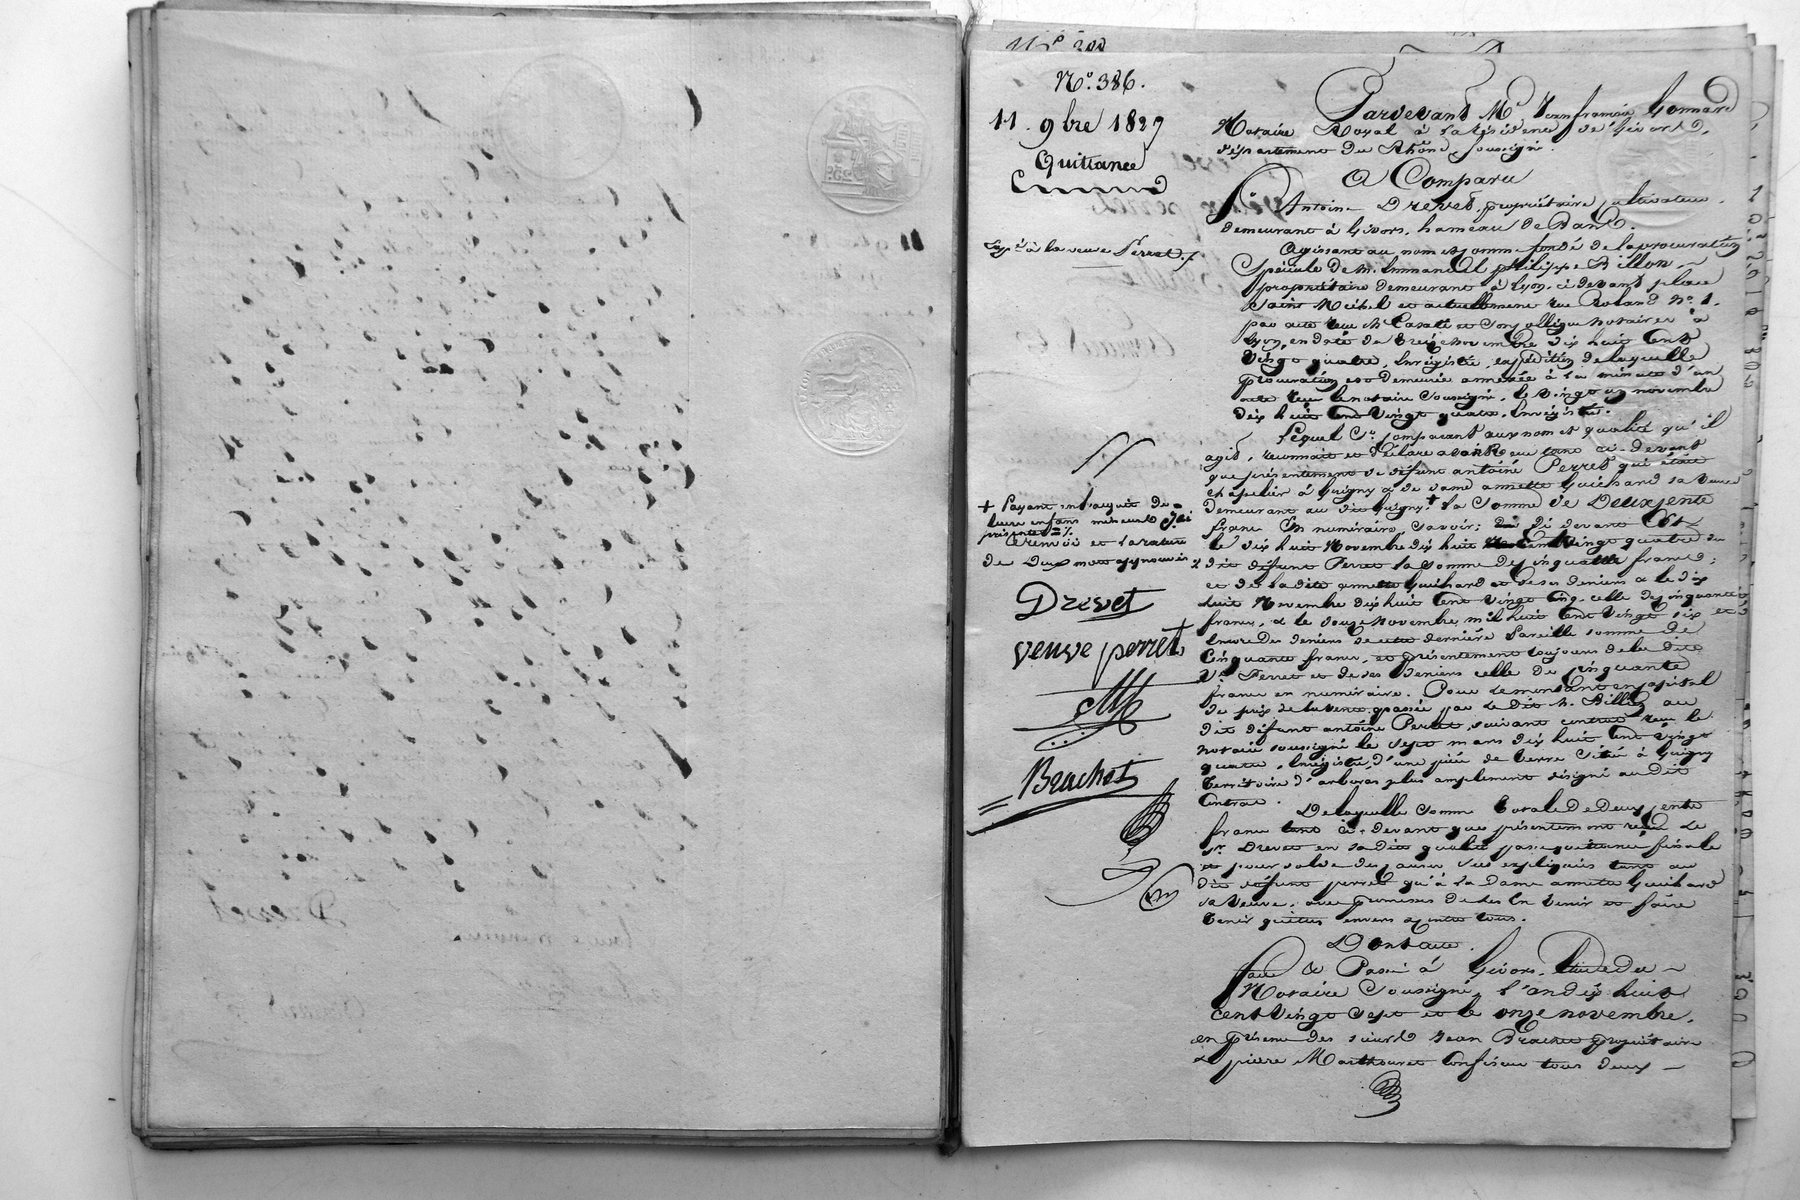 N.º 386.
11. 9bre 1827
Quittance
Expé à la veuve Perret.
+ Payant en l'acquit de
leurs enfans mineurs
présente
Le renvoi et la rature
de deux mots approuvés
Drevet
veuve perret
Brachet
Pardevant Me Jean francois Gonnard
Notaire Royal à la résidence de Givors,
département du Rhône, soussigné.
A Comparu
Sr Antoine Drevet, propriétaire cultivateur
demeurant à Givors, hameau de Bans.
Agissant au nom et comme fondé de la procuration
spéciale de M. Emmanuel philippe Billon
propriétaire demeurant à Lyon, ci devant place
Saint Michel et actuellement rue Roland no. 1.
par acte reçu Me Casati et son collègue notaires à
Lyon, en date du treize novembre dix huit cent
vingt quatre, Enregistré, expédition de laquelle
procuration est demeurée annexée à la minute d'un
acte reçu le notaire soussigné, le vingt un novembre
dix huit cent vingt quatre, Enregistré.
Lequel Sr comparant aux nom et qualité qu'il
agit, reconnait et déclare avoir reçu tant ci-devant
que présentement de défunt antoine Perret qui était
chapelier à Grigny & de dame annette Guichard sa veuve
demeurant au dit Grigny + la Somme de Deux cents
francs En numéraire, savoir: Ci devant Et
le dix huit Novembre dix huit Cent vingt quatre du
dit défunt Perret la somme de cinquante francs;
et de la dite annette Guichard et de ses deniers & le dix
huit Novembre dix huit Cent vingt Cinq celle de cinquante
francs, & le douze Novembre mil huit Cent vingt six et
Encore des deniers de cette dernière Pareille somme de
Cinquante francs, et présentement toujours de la dite
Ve Perret et de ses deniers celle de cinquante
francs en numéraire. Pour le montant en capital
du prix de la vente passée par le dit M. Billon au
dit défunt antoine Perret, suivant contrat reçu le
notaire soussigné le sept mars dix huit Cent vingt
quatre, Enregistré, d'une pièce de terre située à Grigny
territoire d'arboras plus amplement désigné au dit
Contrat.
De laquelle somme totale de Deux cents
francs tant ci-devant que présentement reçue le
Sr. Drevet en sa dite qualité passe quittance finale
et pour solde des causes sus expliquées tant au
dit défunt perret qu'à la Dame annette Guichard
sa veuve, avec promesses de les En tenir et faire
tenir quittes envers et contre tous.
Dont acte.
Fait & Passé à Givors, Etude du
Notaire Soussigné, l'an dix huit
cent vingt sept et le onze novembre.
en présence des sieurs Jean Brachet propriétaire
& pierre Marthouret Confiseur tous deux